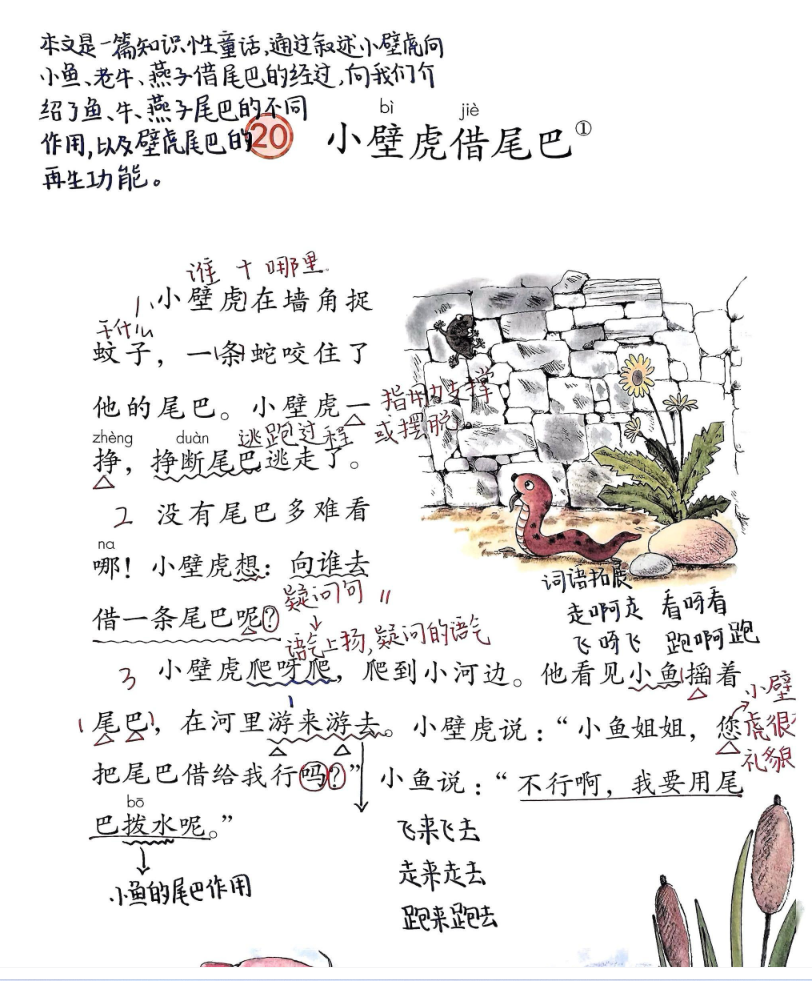 本文是一篇知识性童话,通过叙述小壁虎向
小鱼、老牛、燕子借尾巴的经过,向我们介
绍了鱼、牛、燕子尾巴的不同
作用,以及壁虎尾巴的
再生功能。
bì jiè
20 小壁虎借尾巴①
谁 十 哪里
1、小壁虎在墙角捉
干什么
蚊子，一条蛇咬住了
他的尾巴。小壁虎一
指用力支撑
或摆脱。
逃跑过程
zhèng duàn
挣，挣断尾巴逃走了。
2 没有尾巴多难看
na
哪！小壁虎想：向谁去
借一条尾巴呢？
疑问句
语气上扬,疑问的语气
词语拓展
走啊走 看呀看
飞呀飞 跑啊跑
3 小壁虎爬呀爬，爬到小河边。他看见小鱼摇着
小壁
虎很
礼貌
尾巴，在河里游来游去。小壁虎说：“小鱼姐姐，您
把尾巴借给我行吗？”小鱼说：“不行啊，我要用尾
bō
巴拨水呢。”
小鱼的尾巴作用
飞来飞去
走来走去
跑来跑去